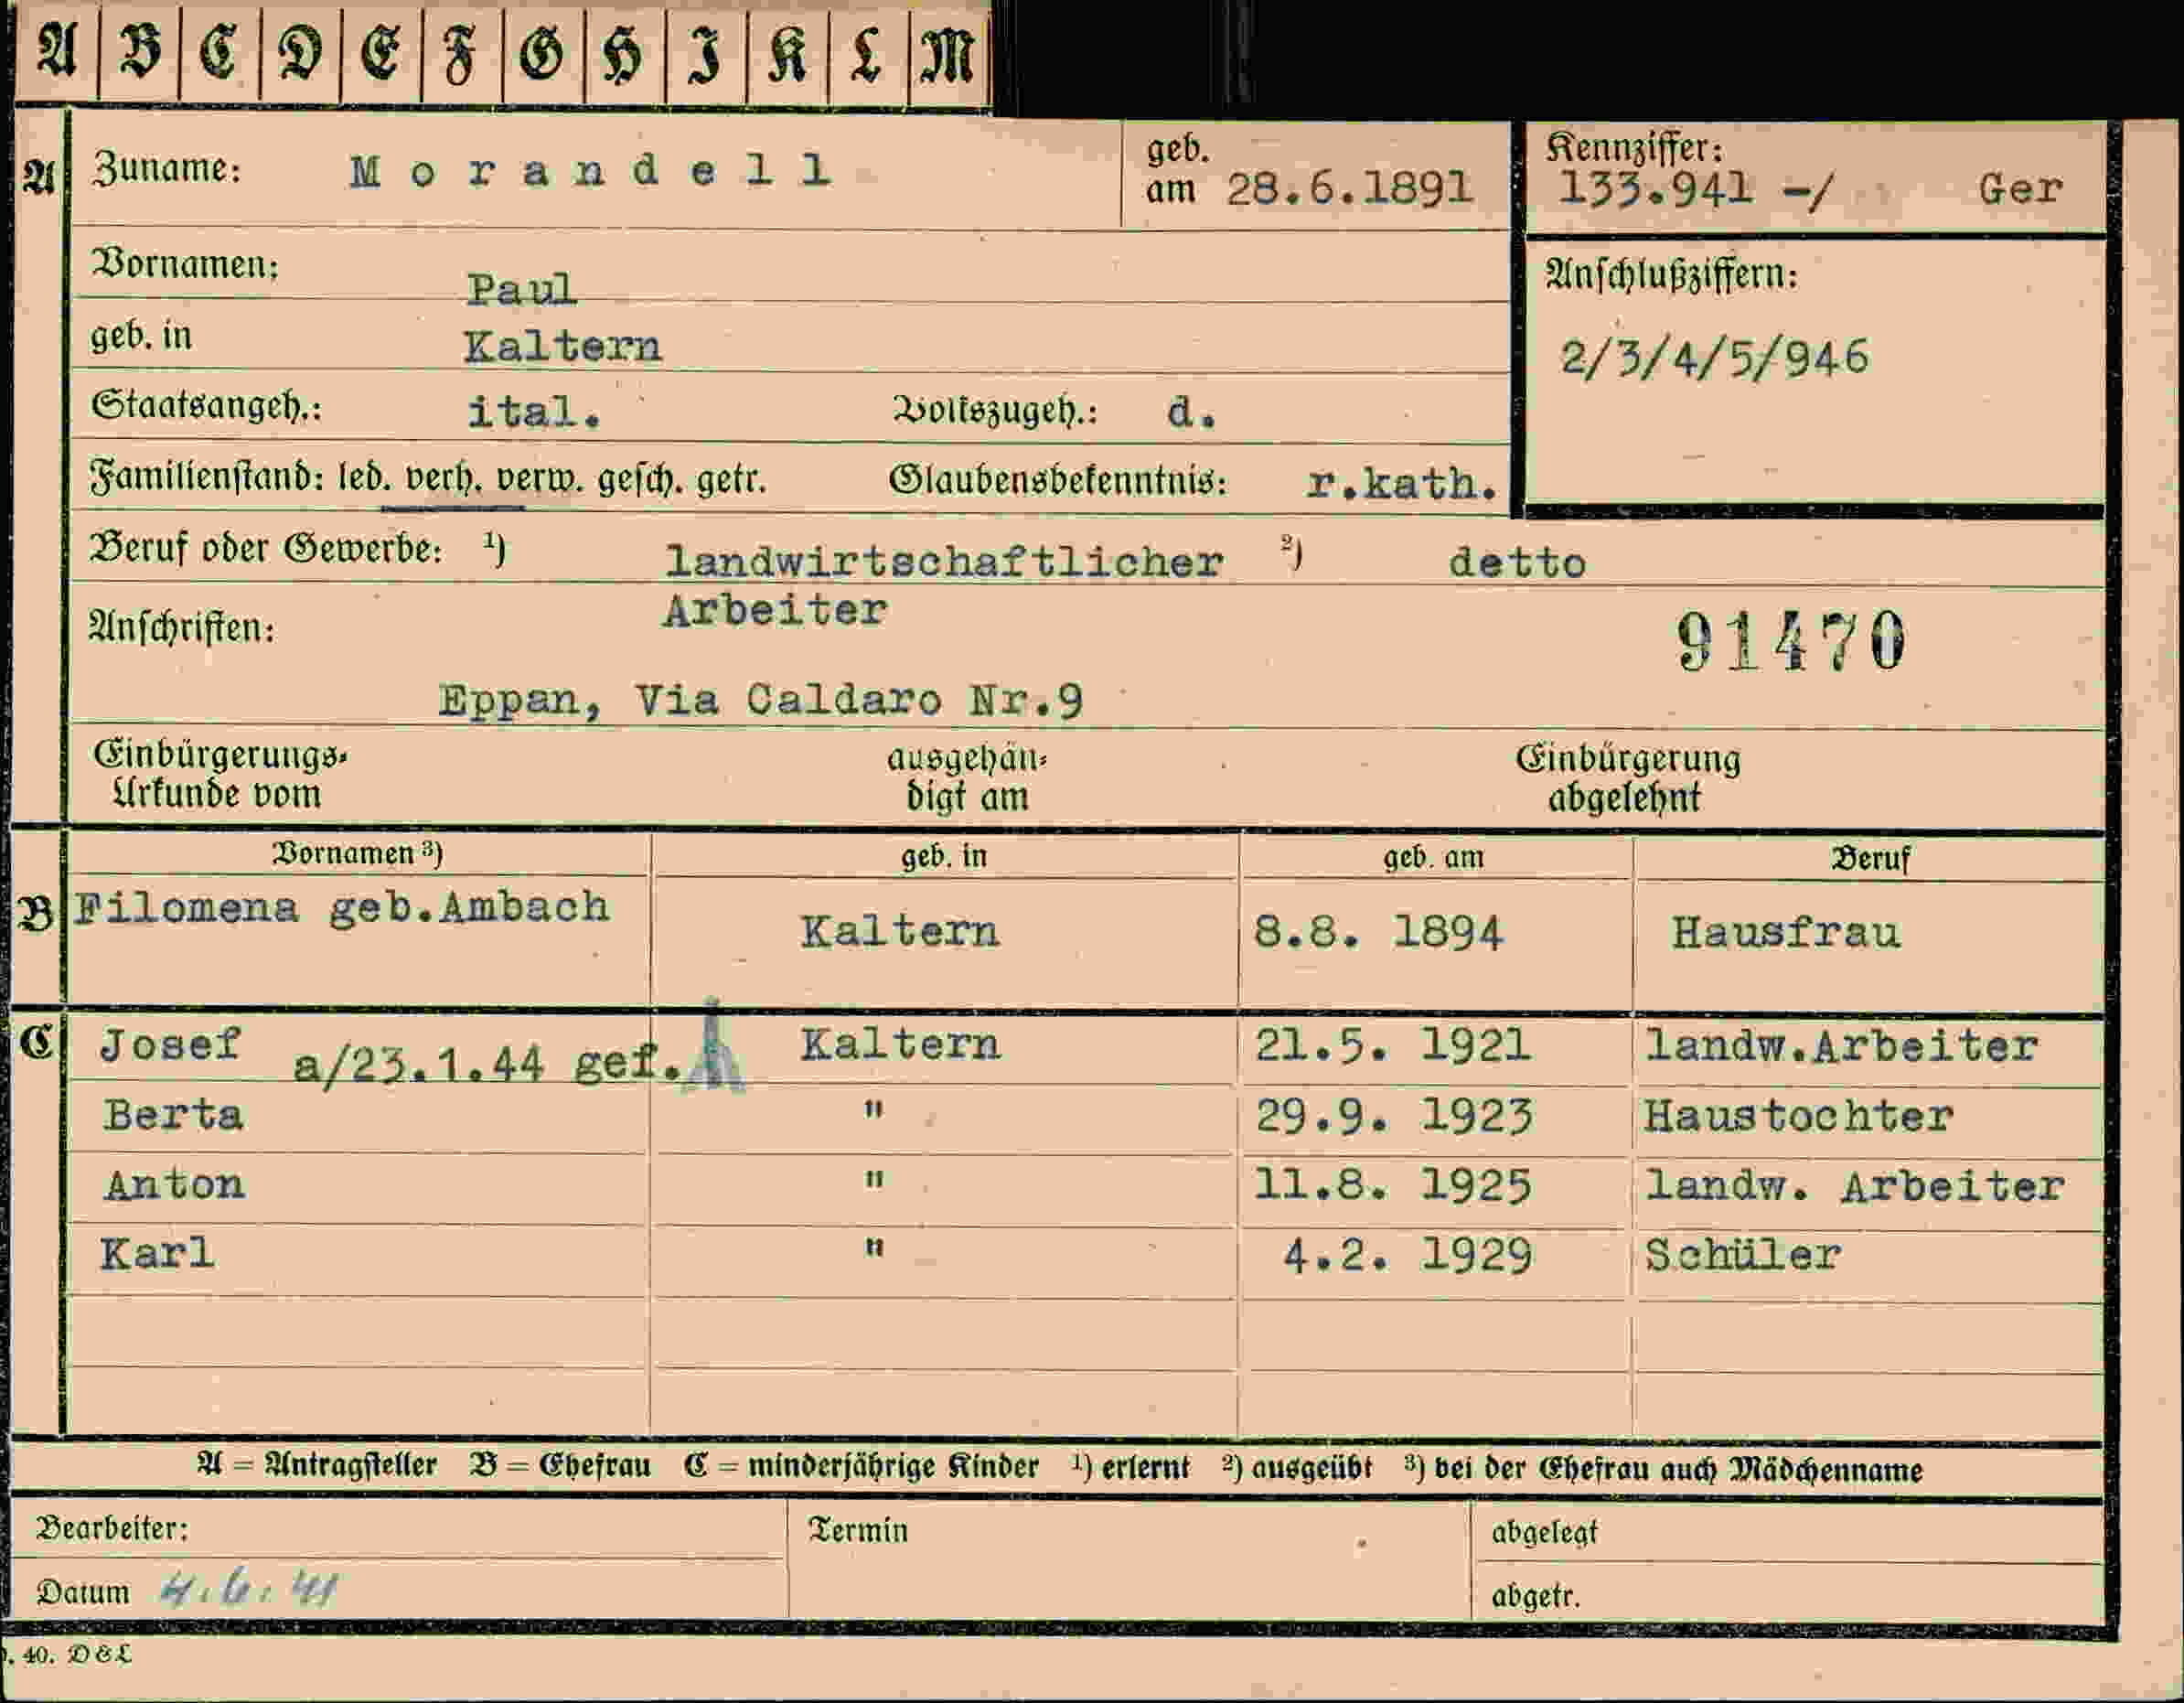 A B C D E F G H I K L M
A Zuname: Morandell geb. am 28.6.1891 Kennziffer: 133.941 -/ Ger
Vornamen: Paul Anschlußziffern:
geb. in Kaltern 2/3/4/5/946
Staatsangeh.: ital. Volkszugeh.: d.
Familienstand: led. verh. verw. gesch. getr. Glaubensbekenntnis: r.kath.
Beruf oder Gewerbe: ¹) landwirtschaftlicher ²) detto
Arbeiter
Anschriften: 91470
Eppan, Via Caldaro Nr.9
Einbürgerungs- ausgehän- Einbürgerung
Urkunde vom digt am abgelehnt
Vornamen ³) geb. in geb. am Beruf
B Filomena geb.Ambach Kaltern 8.8. 1894 Hausfrau
C Josef a/23.1.44 gef. Kaltern 21.5. 1921 landw.Arbeiter
Berta " 29.9. 1923 Haustochter
Anton " 11.8. 1925 landw. Arbeiter
Karl " 4.2. 1929 Schüler
A = Antragsteller B = Ehefrau C = minderjährige Kinder ¹) erlernt ²) ausgeübt ³) bei der Ehefrau auch Mädchenname
Bearbeiter: Termin abgelegt
Datum 4.6.41 abgetr.
40. D&L